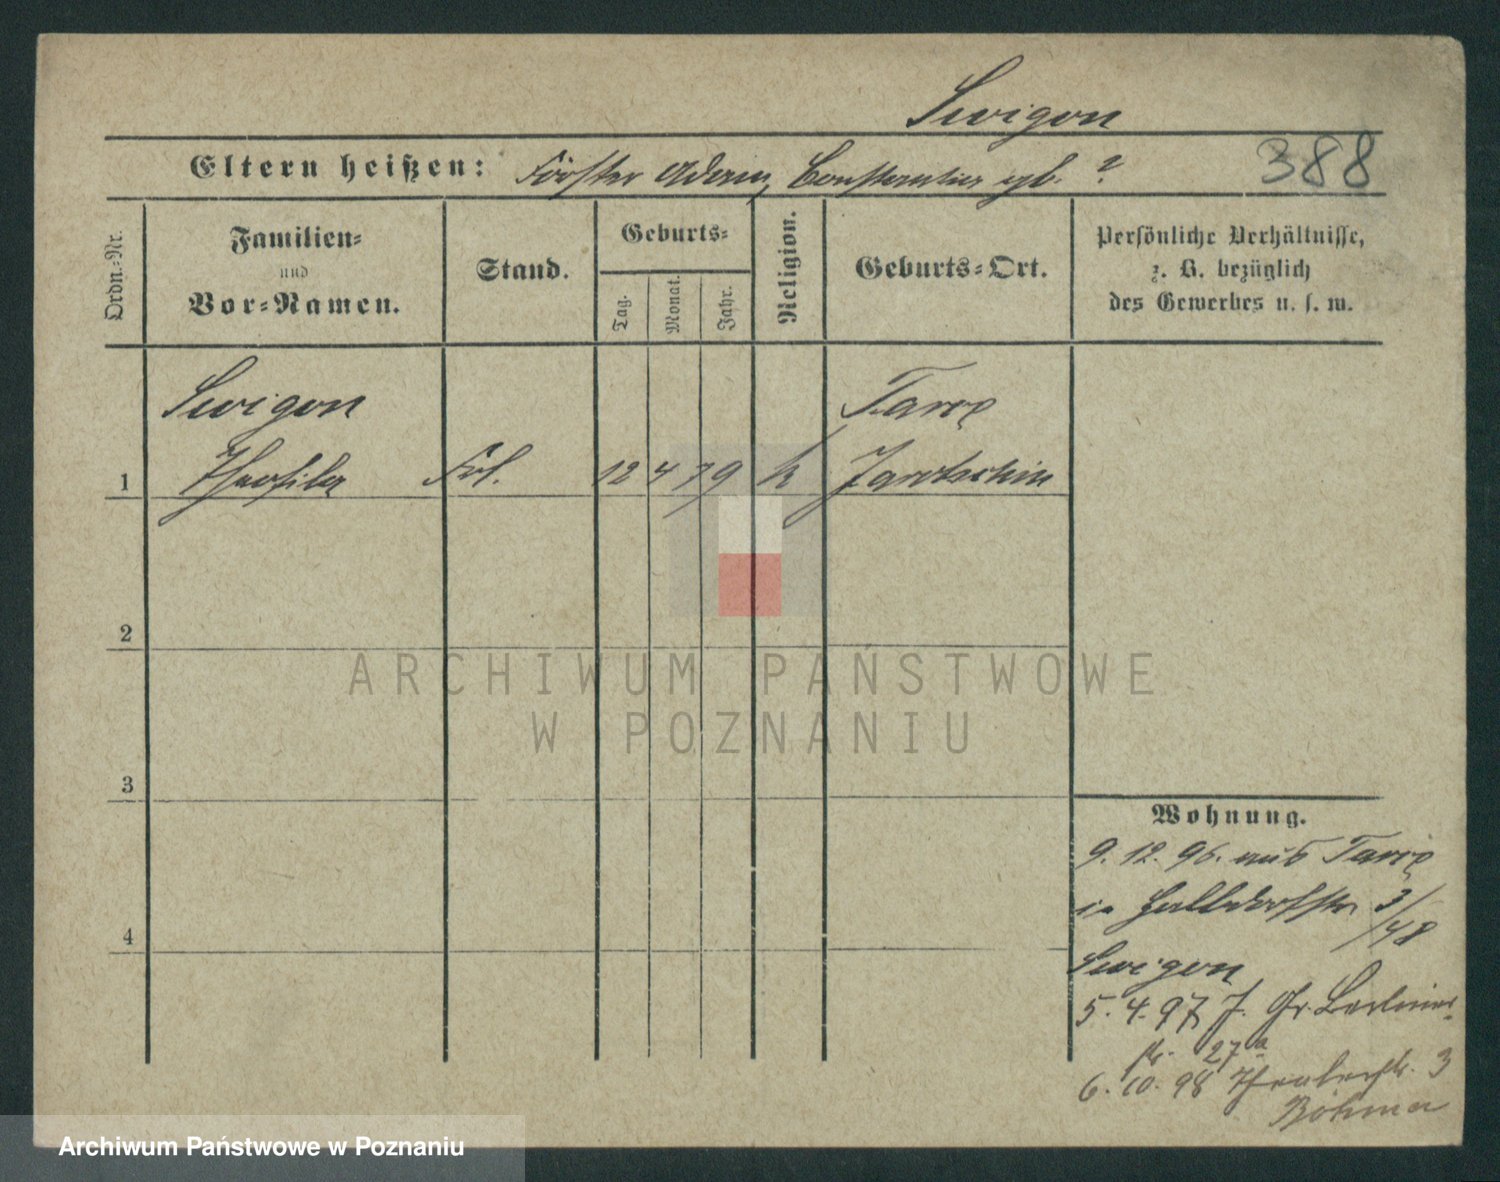 Swigon
Eltern heißen: Förster Adam, Constantia geb. ?
388
Ordn.-Nr.
Familien-
und
Vor-Namen.
Stand.
Geburts-
Tag.
Monat.
Jahr.
Religion.
Geburts-Ort.
Persönliche Verhältnisse,
z. B. bezüglich
des Gewerbes u. s. w.
Swigon
Tarce
1 Theofila Frl. 12 4 79 k Jarotschin
2
3
4
Wohnung.
9. 12. 96. aus Tarce
in Halbdorfstr 3/
/48
Swigon
5. 4. 97 J. Gr. Berliner-
str. 27a
6. 10. 98 Theaterstr. 3
Böhmer
ARCHIWUM PAŃSTWOWE
W POZNANIU
Archiwum Państwowe w Poznaniu